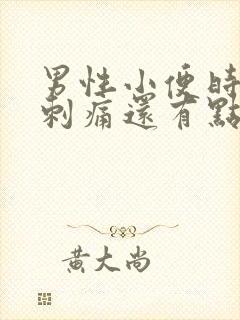 男性小便時
刺痛還有點
黃大尚